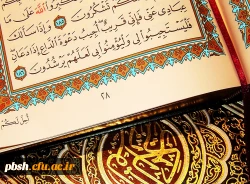 اللَّهَ عَلَىٰ مَا
تَشْكُرُونَ ١٨٥ وَإِذَا سَأَلَكَ
عِبَادِي عَنِّي فَإِنِّي قَرِيبٌ أُجِيبُ دَعْوَةَ الدَّاعِ إِذَا دَعَانِ
فَلْيَسْتَجِيبُوا لِي وَلْيُؤْمِنُوا بِي لَعَلَّهُمْ يَرْشُدُونَ ١٨٦
٢٨
أُحِلَّ لَكُمْ
pbsh.cfu.ac.ir